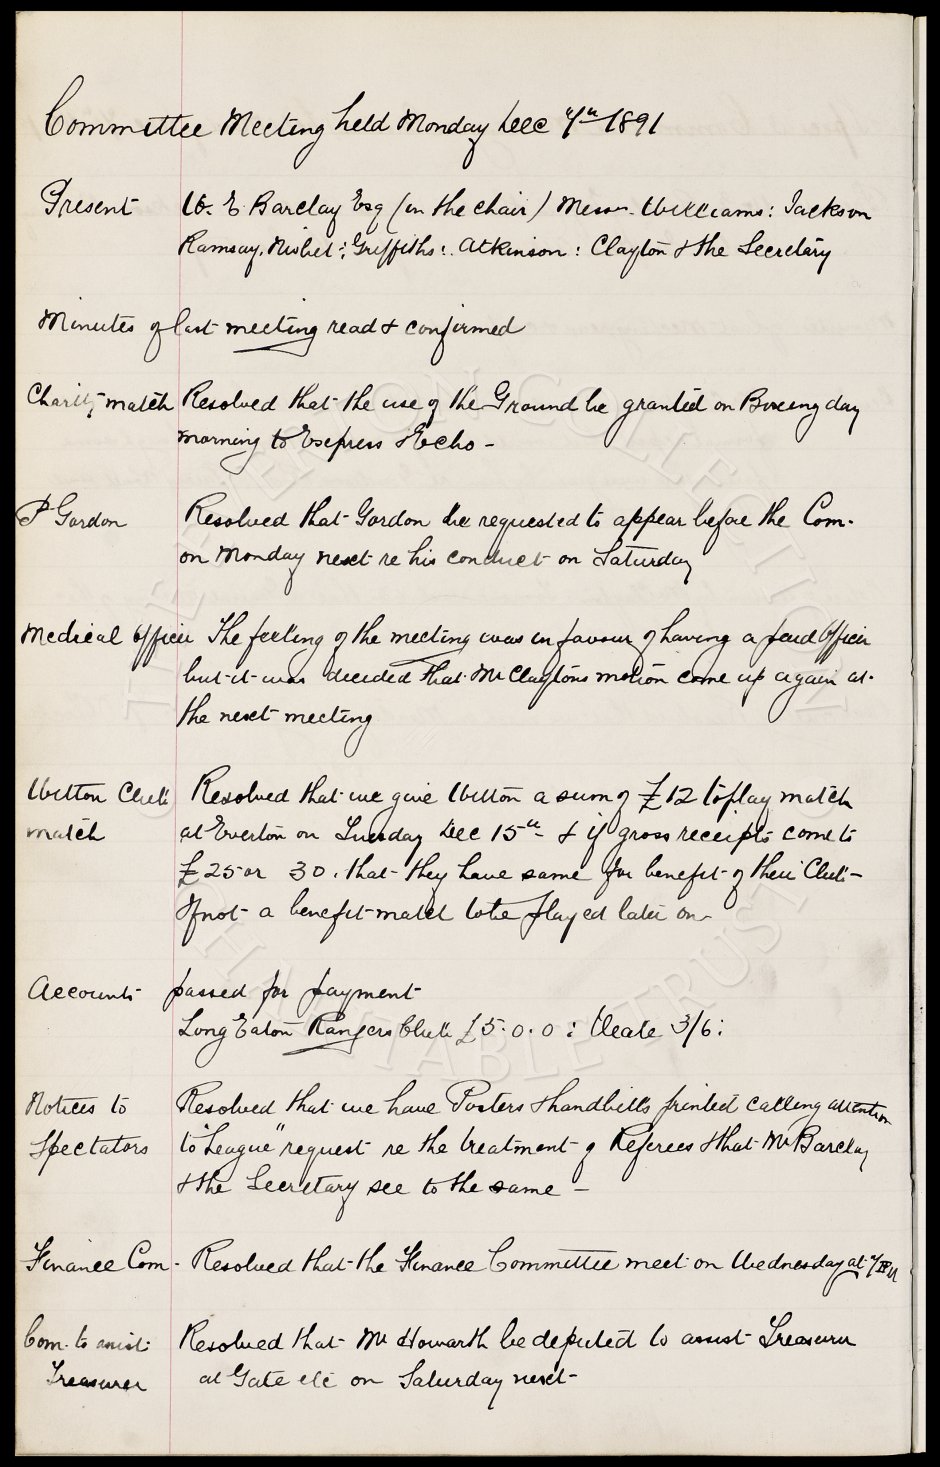 Committee Meeting held Monday Dec 7th 1891
Present W. E. Barclay Esq (in the chair) Messrs. Williams: Jackson
Ramsay. Nisbet: Griffiths: Atkinson: Clayton & the Secretary
Minutes of last meeting read & confirmed
Charity match Resolved that the use of the Ground be granted on Boxing day
morning to Express & Echo -
P Gordon Resolved that Gordon be requested to appear before the Com.
on Monday next re his conduct on Saturday
Medical Officer The feeling of the meeting was in favour of having a paid Officer
but it was decided that Mr Claytons motion come up again at
the next meeting
Witton Club Resolved that we give Witton a sum of £12 to play match
match at Everton on Tuesday Dec 15th & if gross receipts come to
£25 or 30. that they have same for benefit of their Club -
If not a benefit match to be played later on
Accounts passed for payment
Long Eaton Rangers Club £5.0.0: Veale 3/6:
Notices to Resolved that we have Posters & handbills printed calling attention
Spectators to "League" request re the treatment of Referees & that Mr Barclay
& the Secretary see to the same -
Finance Com. Resolved that the Finance Committee meet on Wednesday at 7
Com. to assist Resolved that Mr Howarth be deputed to assist Treasurer
Treasurer at Gate etc on Saturday next
THE EVERTON COLLECTION
CHARITABLE TRUST